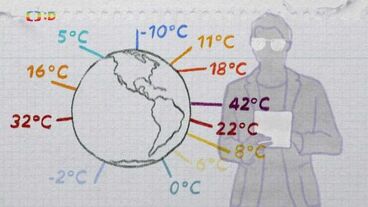 :D
5°C
-10°C
11°C
16°C
18°C
32°C
42°C
22°C
8°C
6°C
-2°C
0°C